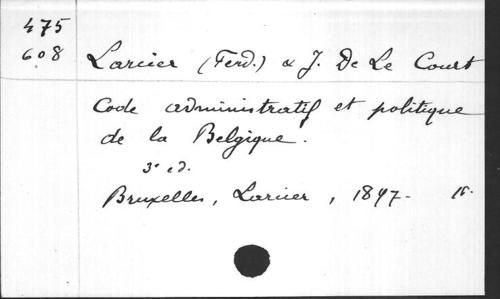 475
608
Larcier (Ferd.) & J. De Le Court
Code administratif et politique
de la Belgique.
3e ed.
Bruxelles, Larcier, 1897.